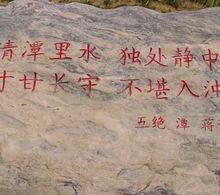 清潭里水 独处静中
甘长宇 不堪入浊
五绝 潭 蒋